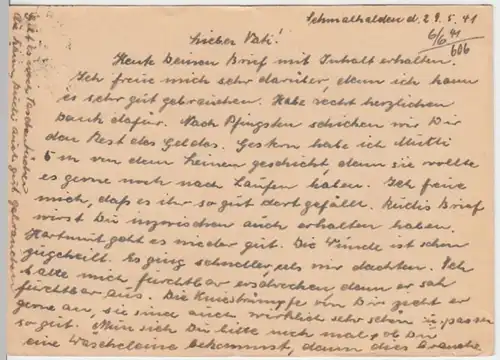 Schmalkalden d. 29.5.41
6/6 41
606
Lieber Vati!
Heute Deinen Brief mit Inhalt erhalten.
Ich freue mich sehr darüber, denn ich kann
es sehr gut gebrauchen. Habe recht herzlichen
Dank dafür. Nach Pfingsten schicken wir Dir
den Rest des Geldes. Gestern habe ich Mutti
5 m von dem Leinen geschickt, denn sie wollte
es gerne noch nach Laufen haben. Ich freue
mich, daß es ihr so gut dort gefällt. Rudis Brief
wirst Du inzwischen auch erhalten haben.
Hartmut geht es wieder gut. Die Wunde ist schon
zugeheilt. Es ging schneller, als wir dachten. Ich
hatte mich furchtbar erschrocken denn er sah
furchtbar aus. Die Kniestrümpfe von Dir zieht er
gerne an, sie sind auch wirklich sehr schön u. passen
so gut. Nun sieh Du bitte noch mal, ob Du
eine Wascheleine bekommst, denn die brauche
Gibt es von Taschentücher
da kann auch gut gebrauchen